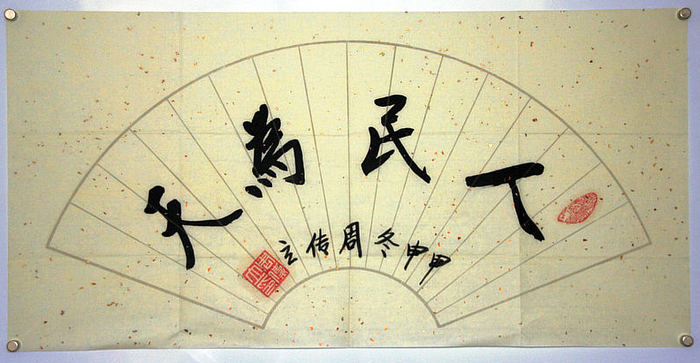 丁民為天
甲申冬周传立